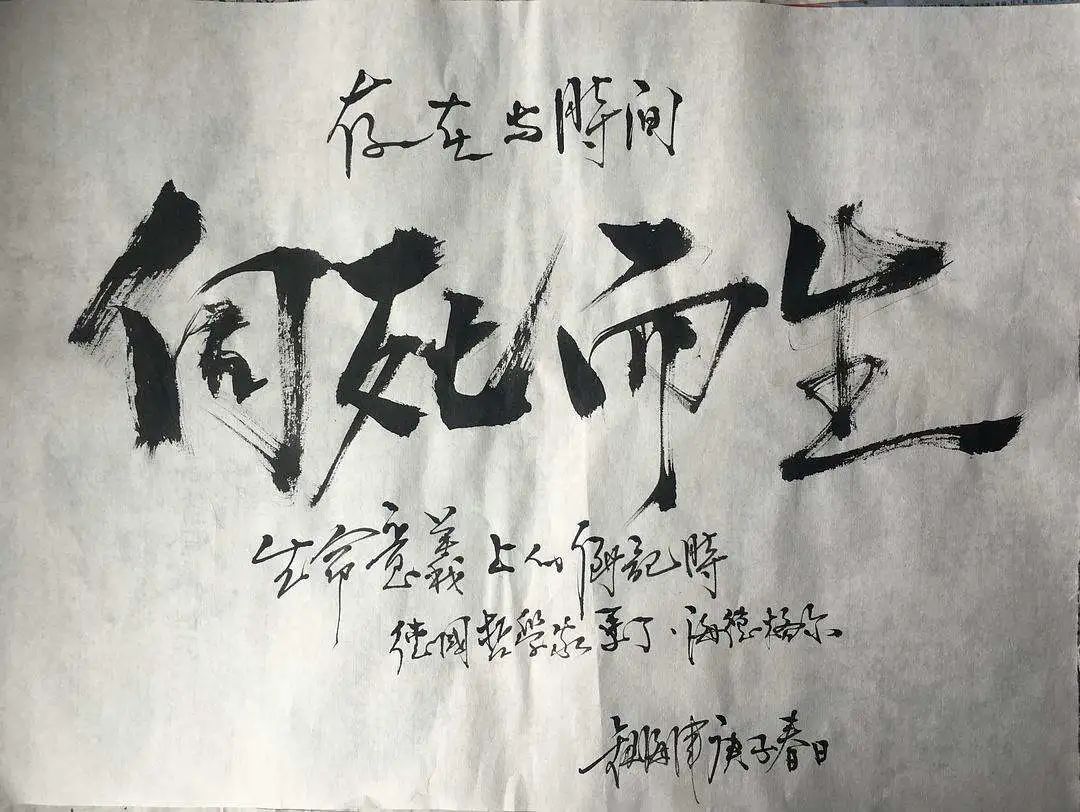 存在与時间
向死而生
生命意義上的倒記時
德國哲學家馬丁·海德格尔
庚子春日